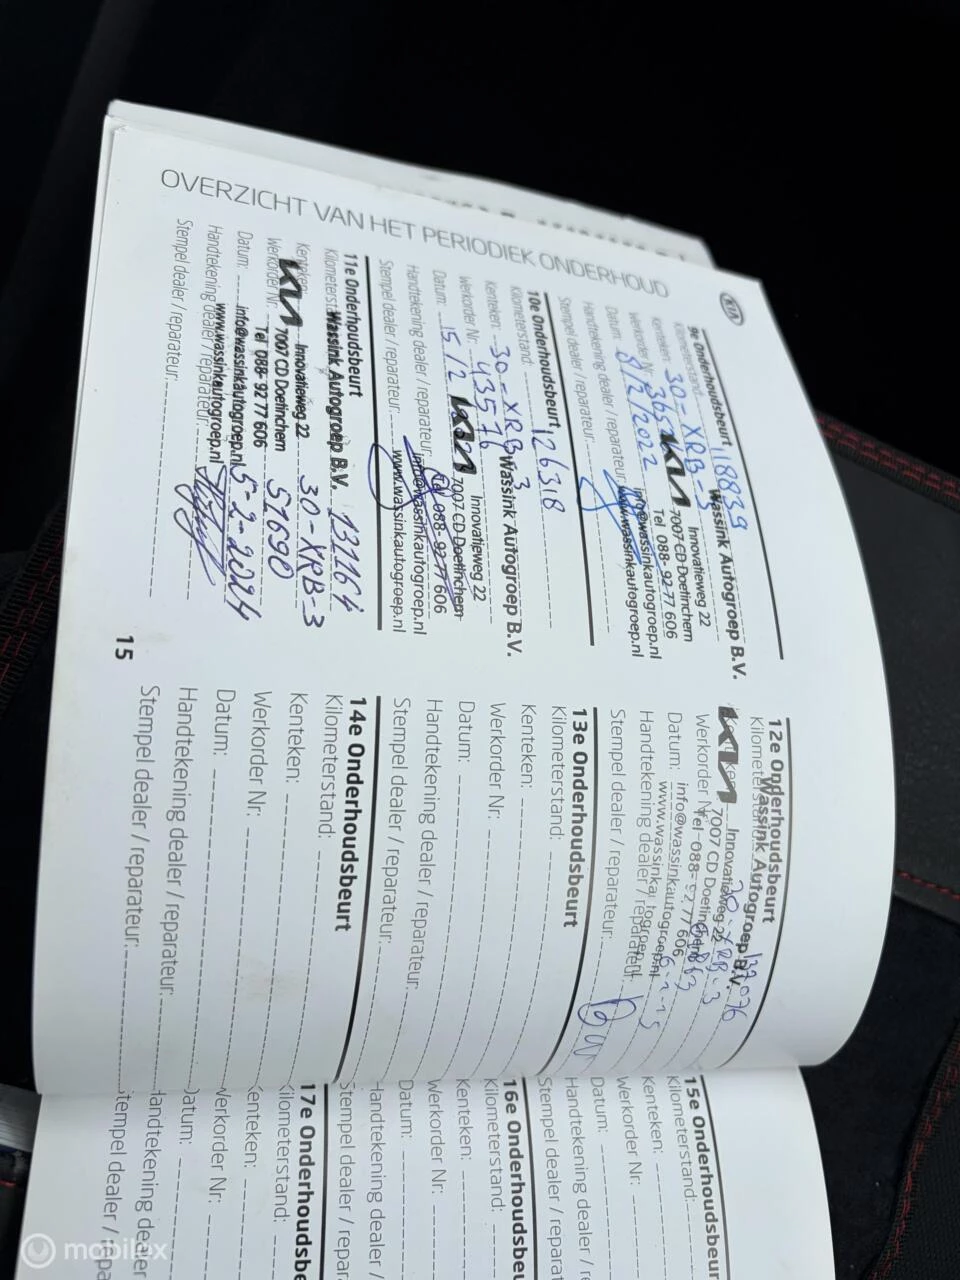 OVERZICHT VAN HET PERIODIEK ONDERHOUD
KIA
9e Onderhoudsbeurt
Kilometerstand: 118839
Kenteken: 30-XRB-3
Werkorder Nr:
Datum: 8/2/202
Handtekening dealer / reparateur:
Stempel dealer / reparateur:
Wassink Autogroep B.V.
KIA
Innovatieweg 22
7007 CD Doetinchem
Tel 088- 92 77 606
info@wassinkautogroep.nl
www.wassinkautogroep.nl
10e Onderhoudsbeurt
Kilometerstand: 126318
Kenteken: 30-XRB-3
Werkorder Nr: 43576
Datum: 15/2
Handtekening dealer / reparateur:
Stempel dealer / reparateur:
Wassink Autogroep B.V.
KIA
Innovatieweg 22
7007 CD Doetinchem
Tel 088- 92 77 606
info@wassinkautogroep.nl
www.wassinkautogroep.nl
11e Onderhoudsbeurt
Kilometerstand: 131164
Kenteken: 30-XRB-3
Werkorder Nr: 51690
Datum: 5-2-2024
Handtekening dealer / reparateur:
Stempel dealer / reparateur:
Wassink Autogroep B.V.
KIA
Innovatieweg 22
7007 CD Doetinchem
Tel 088- 92 77 606
info@wassinkautogroep.nl
www.wassinkautogroep.nl
15
12e Onderhoudsbeurt
Kilometerstand:
30-XRB-3
Werkorder Nr:
Datum:
Handtekening dealer / reparateur:
Stempel dealer / reparateur:
Wassink Autogroep B.V.
KIA
Innovatieweg 22
7007 CD Doetinchem
Tel 088- 92 77 606
info@wassinkautogroep.nl
www.wassinkautogroep.nl
13e Onderhoudsbeurt
Kilometerstand:
Kenteken:
Werkorder Nr:
Datum:
Handtekening dealer / reparateur:
Stempel dealer / reparateur:
14e Onderhoudsbeurt
Kilometerstand:
Kenteken:
Werkorder Nr:
Datum:
Handtekening dealer / reparateur:
Stempel dealer / reparateur:
15e Onderhoudsbeur
Kilometerstand:
Kenteken:
Werkorder Nr:
Datum:
Handtekening dealer / re
Stempel dealer / repara
16e Onderhoudsbeu
Kilometerstand:
Kenteken:
Werkorder Nr:
Datum:
Handtekening dealer /
Stempel dealer / repar
17e Onderhoudsbe
Kilometerstand:
Kenteken:
Werkorder Nr:
Datum:
Handtekening dealer
Stempel dealer / repa
mobilox